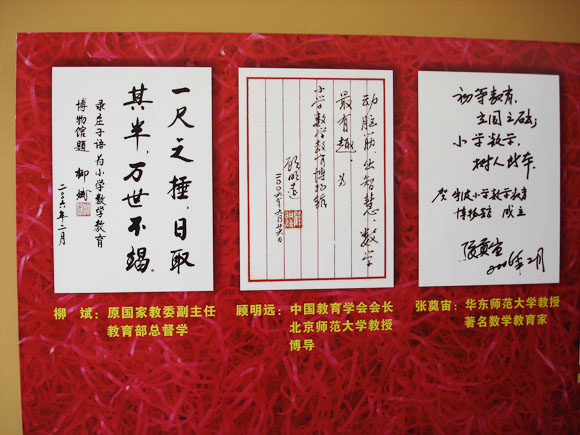 一尺之捶,日取
其半,万世不竭。
录庄子语为小学数学教育
博物馆题 柳斌
二〇〇六年二月
动脑筋,出智慧,数学
最有趣。为
小学数学教育博物馆
顾明远
二〇〇六年
初等教育,
立国之础;
小学数学,
树人
贺宁波小学数学教育
博物馆 成立
张奠宙
2006年2月
柳 斌:原国家教委副主任
教育部总督学
顾明远:中国教育学会会长
北京师范大学教授
博导
张奠宙:华东师范大学教授
著名数学教育家